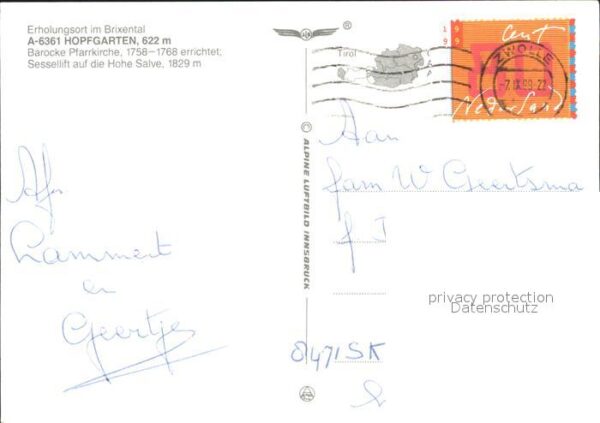 Erholungsort im Brixental
A-6361 HOPFGARTEN, 622 m
Barocke Pfarrkirche, 1758–1768 errichtet;
Sessellift auf die Hohe Salve, 1829 m
®
Tirol
ALPINE LUFTBILD INNSBRUCK
1999
Cent
Nederland
ZWOLLE
Afz
Lammert
en
Geertje
Aan
fam W Geertsma
privacy protection
Datenschutz
8471SK